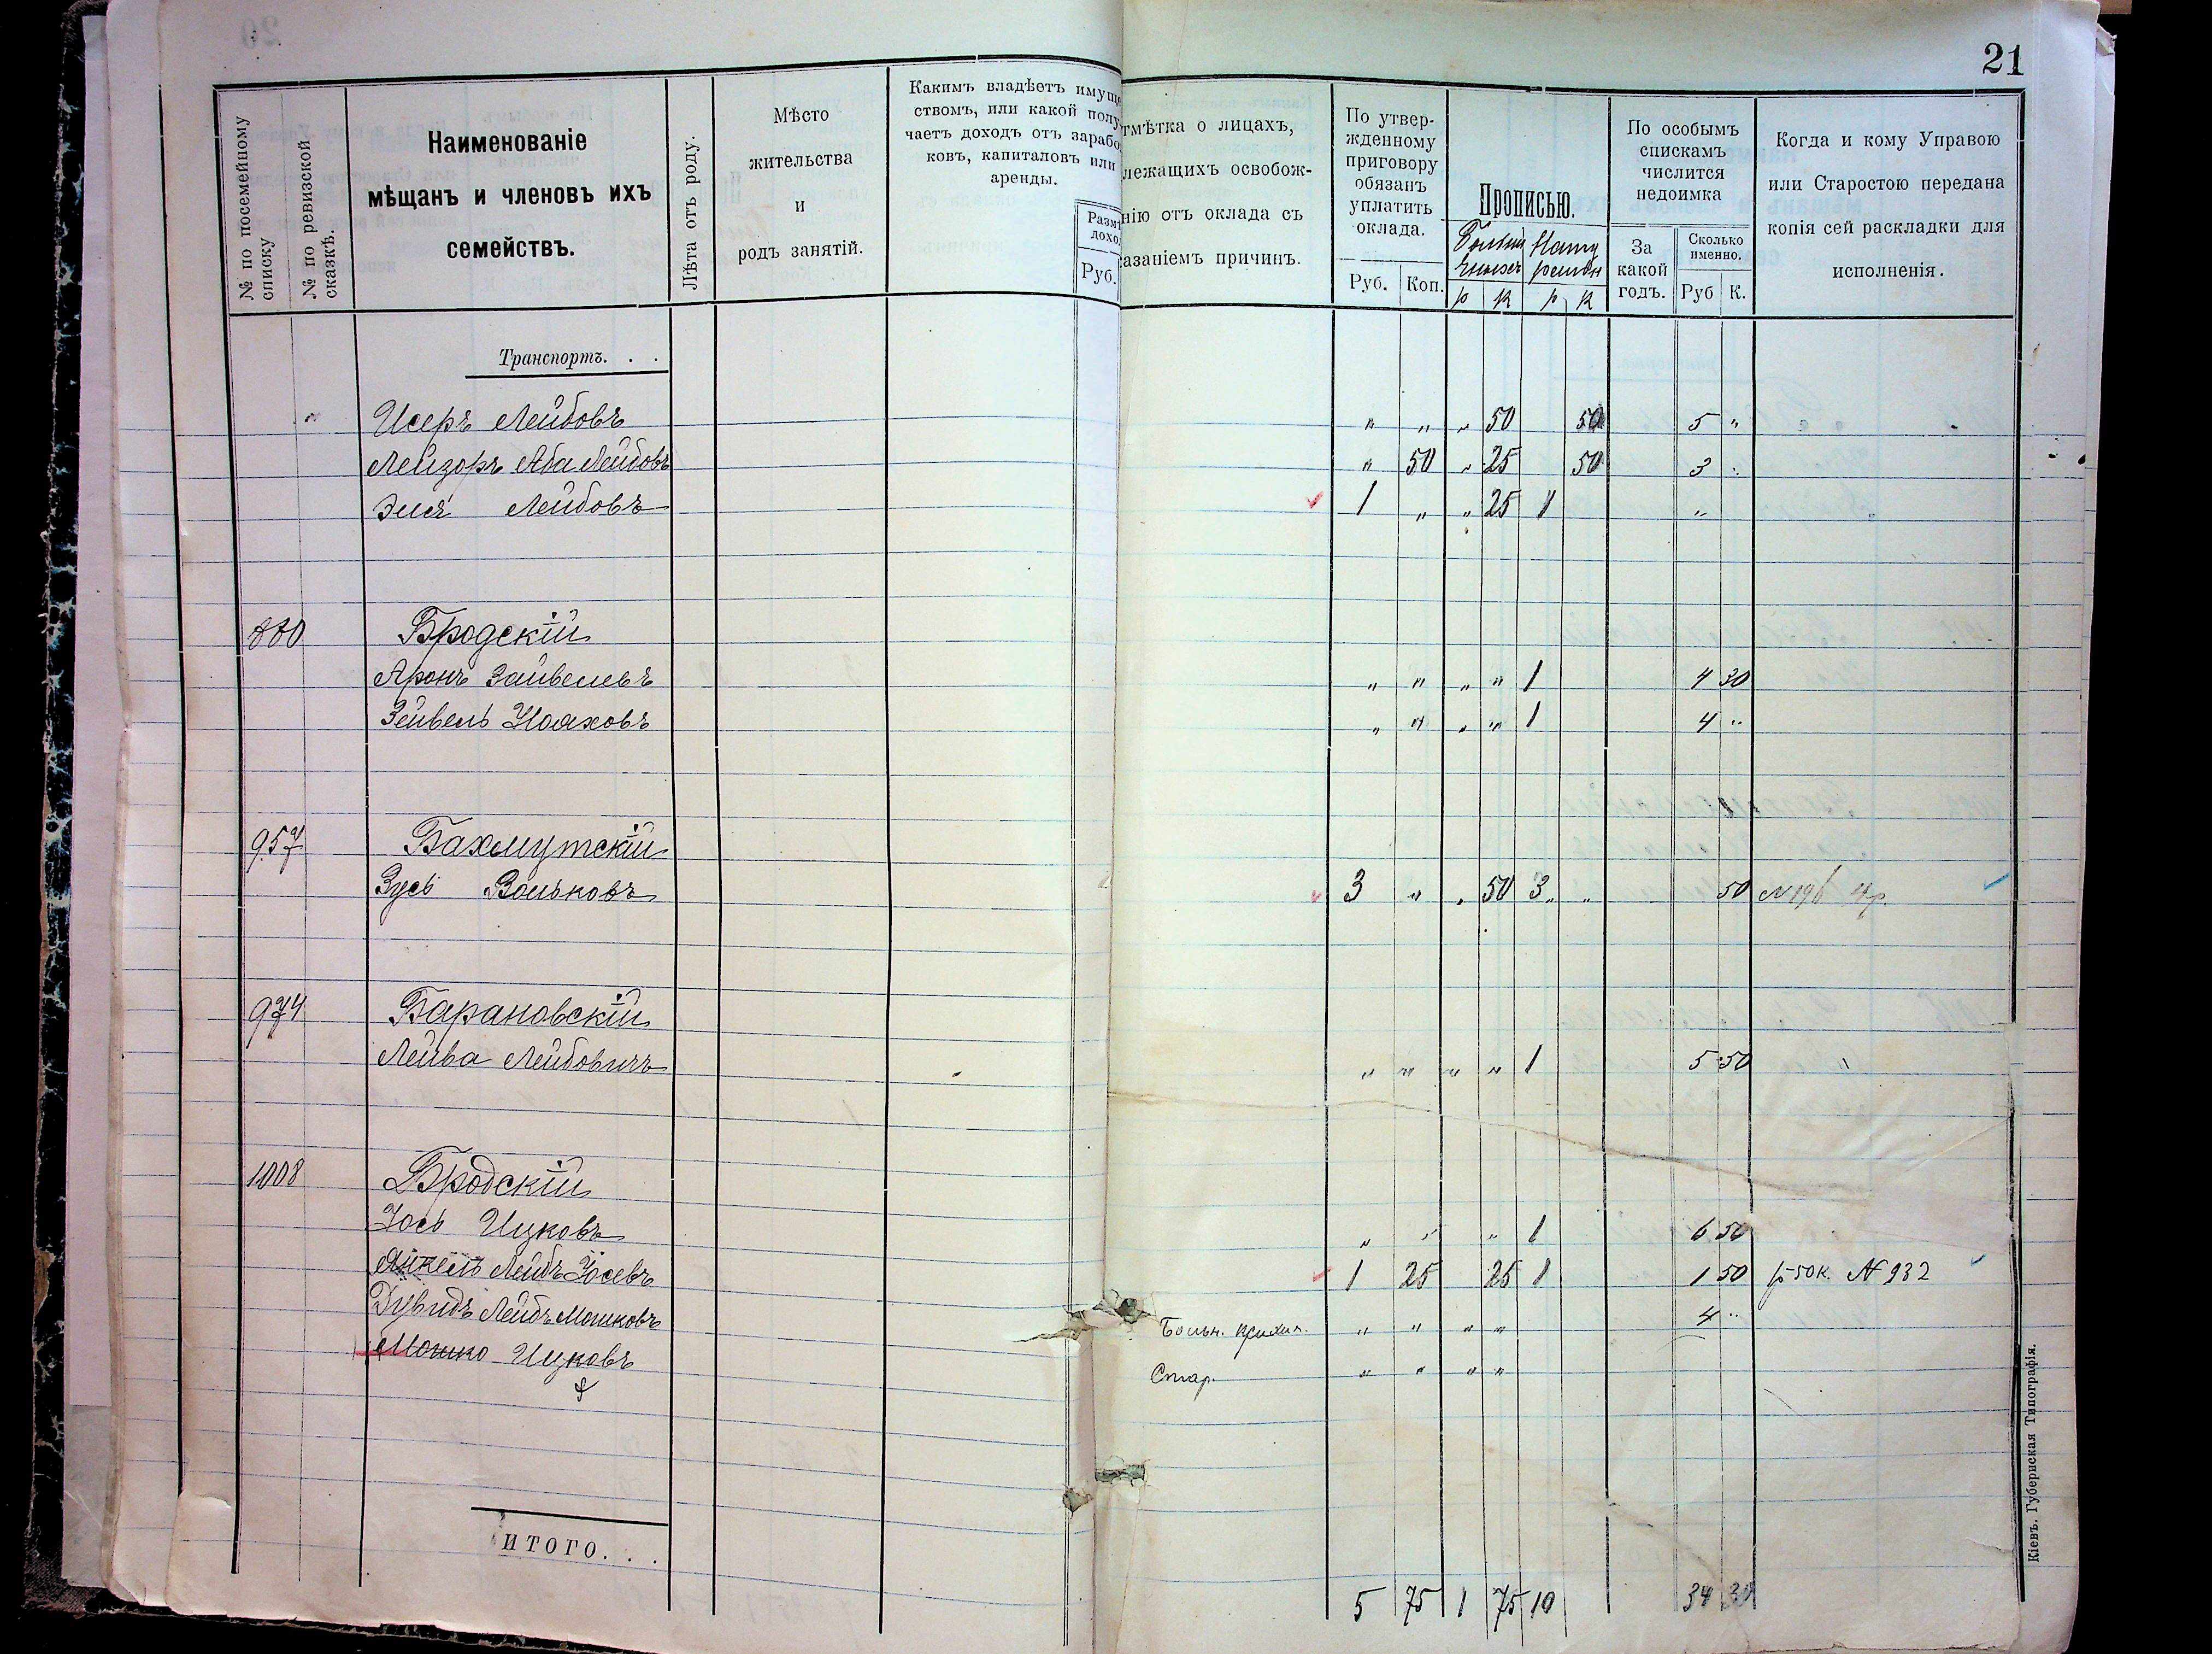 21
№ по посемейному списку
№ по ревизской сказкѣ.
Наименованіе
мѣщанъ и членовъ ихъ
семействъ.
Лѣта отъ роду.
Мѣсто
жительства
и
родъ занятій.
Какимъ владѣетъ имуще
ствомъ, или какой полу
чаетъ доходъ отъ зарабо
ковъ, капиталовъ или
аренды.
Разм
доход
Руб.
тмѣтка о лицахъ,
лежащихъ освобож-
нію отъ оклада съ
азаніемъ причинъ.
По утвер-
жденному
приговору
обязанъ
уплатить
оклада.
Руб. Коп.
Прописью.
р к р к
По особымъ
спискамъ
числится
недоимка
За
какой
годъ.
Сколько
именно.
Руб К.
Когда и кому Управою
или Старостою передана
копія сей раскладки для
исполненія.
Транспортъ. . .
" Исеръ Лейбовъ " " " 50 50 5 "
Лейзоръ Аба Лейбовъ " 50 " 25 50 3 "
Эля Лейбовъ 1 " " 25 1 "
880 Бродскій
Аронъ Зайвелевъ " " " " 1 4 30
Зейвель Ноаховъ " " " " 1 4 "
957 Бахмутскій
Зусь Вольковъ 3 " " 50 3 " " 50 N 196 4р.
974 Барановскій
Лейва Лейбовичъ " " " " 1 5 50
1008 Бродскій
Іось Ицковъ " " " 1 6 50
Янкель Лейбъ Іосевъ 1 25 25 1 1 50 р 50к. N 932
Дувидъ Лейбъ Мошковъ Больн. " " " " 4 "
Мошко Ицковъ Стар. " " " "
ИТОГО. . .
5 75 1 75 10 34 30
Кіевъ. Губернская Типографія.